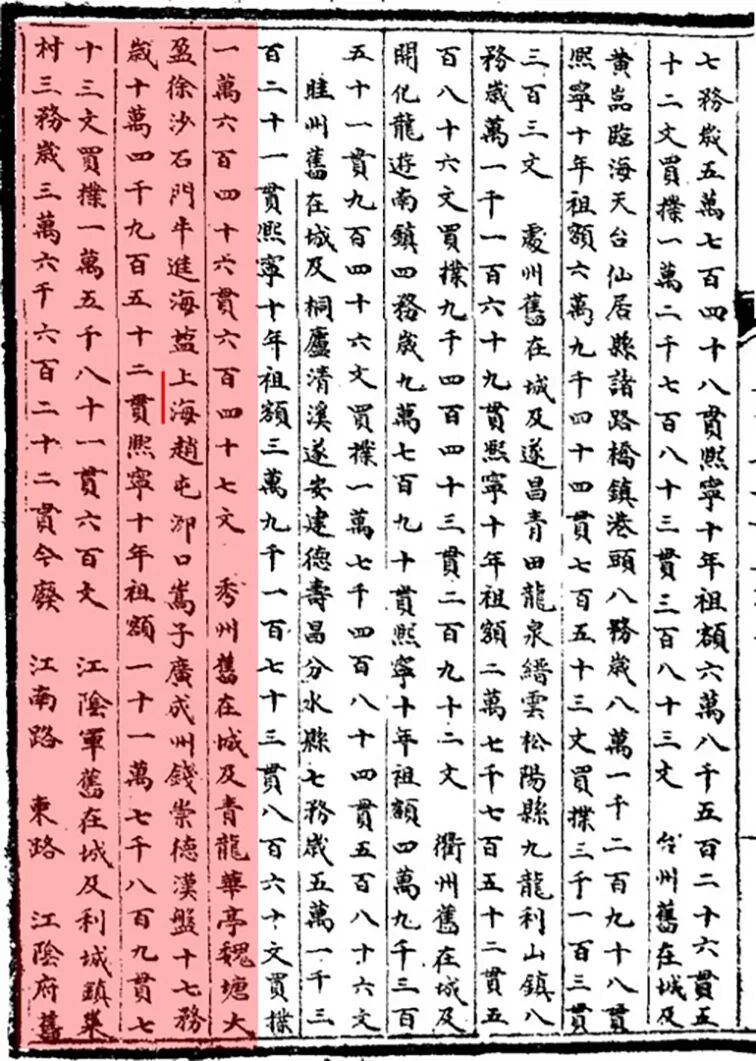 七務歳五萬七百四十八貫熙寧十年祖額六萬八千五百二十六貫五
十二文買撲一萬二千七百八十三貫三百八十三文　台州舊在城及
黃巖臨海天台仙居縣諸路橋鎮港頭八務歳八萬一千二百九十八貫
熙寧十年祖額六萬九千四十四貫七百五十三文買撲三千一百三貫
三百三文　處州舊在城及遂昌青田龍泉縉雲松陽縣九龍利山鎮八
務歳萬一千一百六十九貫熙寧十年祖額二萬七千七百五十二貫五
百八十六文買撲九千四百四十三貫二百九十二文　衢州舊在城及
開化龍遊南鎮四務歳九萬七百九十貫熙寧十年祖額四萬九千三百
五十一貫九百四十六文買撲一萬七千四百八十四貫五百八十六文
睦州舊在城及桐廬清溪遂安建德壽昌分水縣七務歳五萬一千三
百二十一貫熙寧十年祖額三萬九千一百七十三貫八百六十文買撲
一萬六百四十六貫六百四十七文　秀州舊在城及青龍華亭魏塘大
盈徐沙石門牛進海鹽上海趙屯泖口嵩子廣成州錢崇德漢盤十七務
歳十萬四千九百五十二貫熙寧十年祖額一十一萬七千八百九貫七
十三文買撲一萬五千八十一貫六百文　江陰軍舊在城及利城鎮巢
村三務歳三萬六千六百二十二貫今廢　江南路　東路　江陰府舊